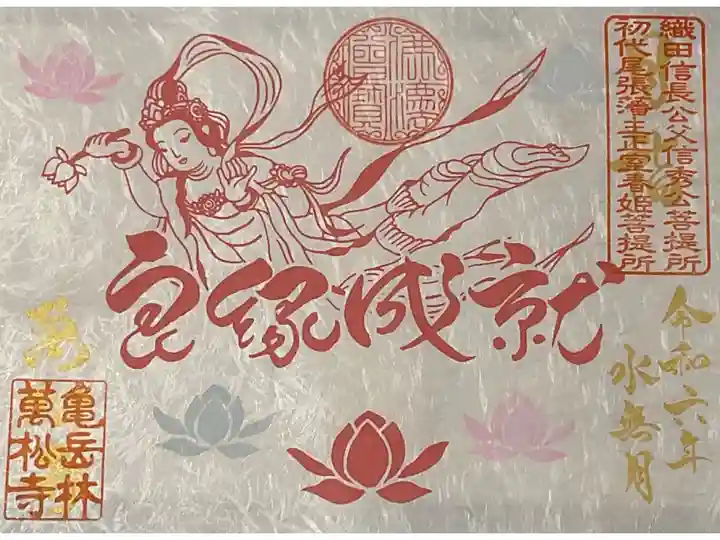 織田信長公父信秀公菩提所
初代尾張藩主正室春姫菩提所
良縁成就
令和六年
水無月
亀岳林
萬松寺